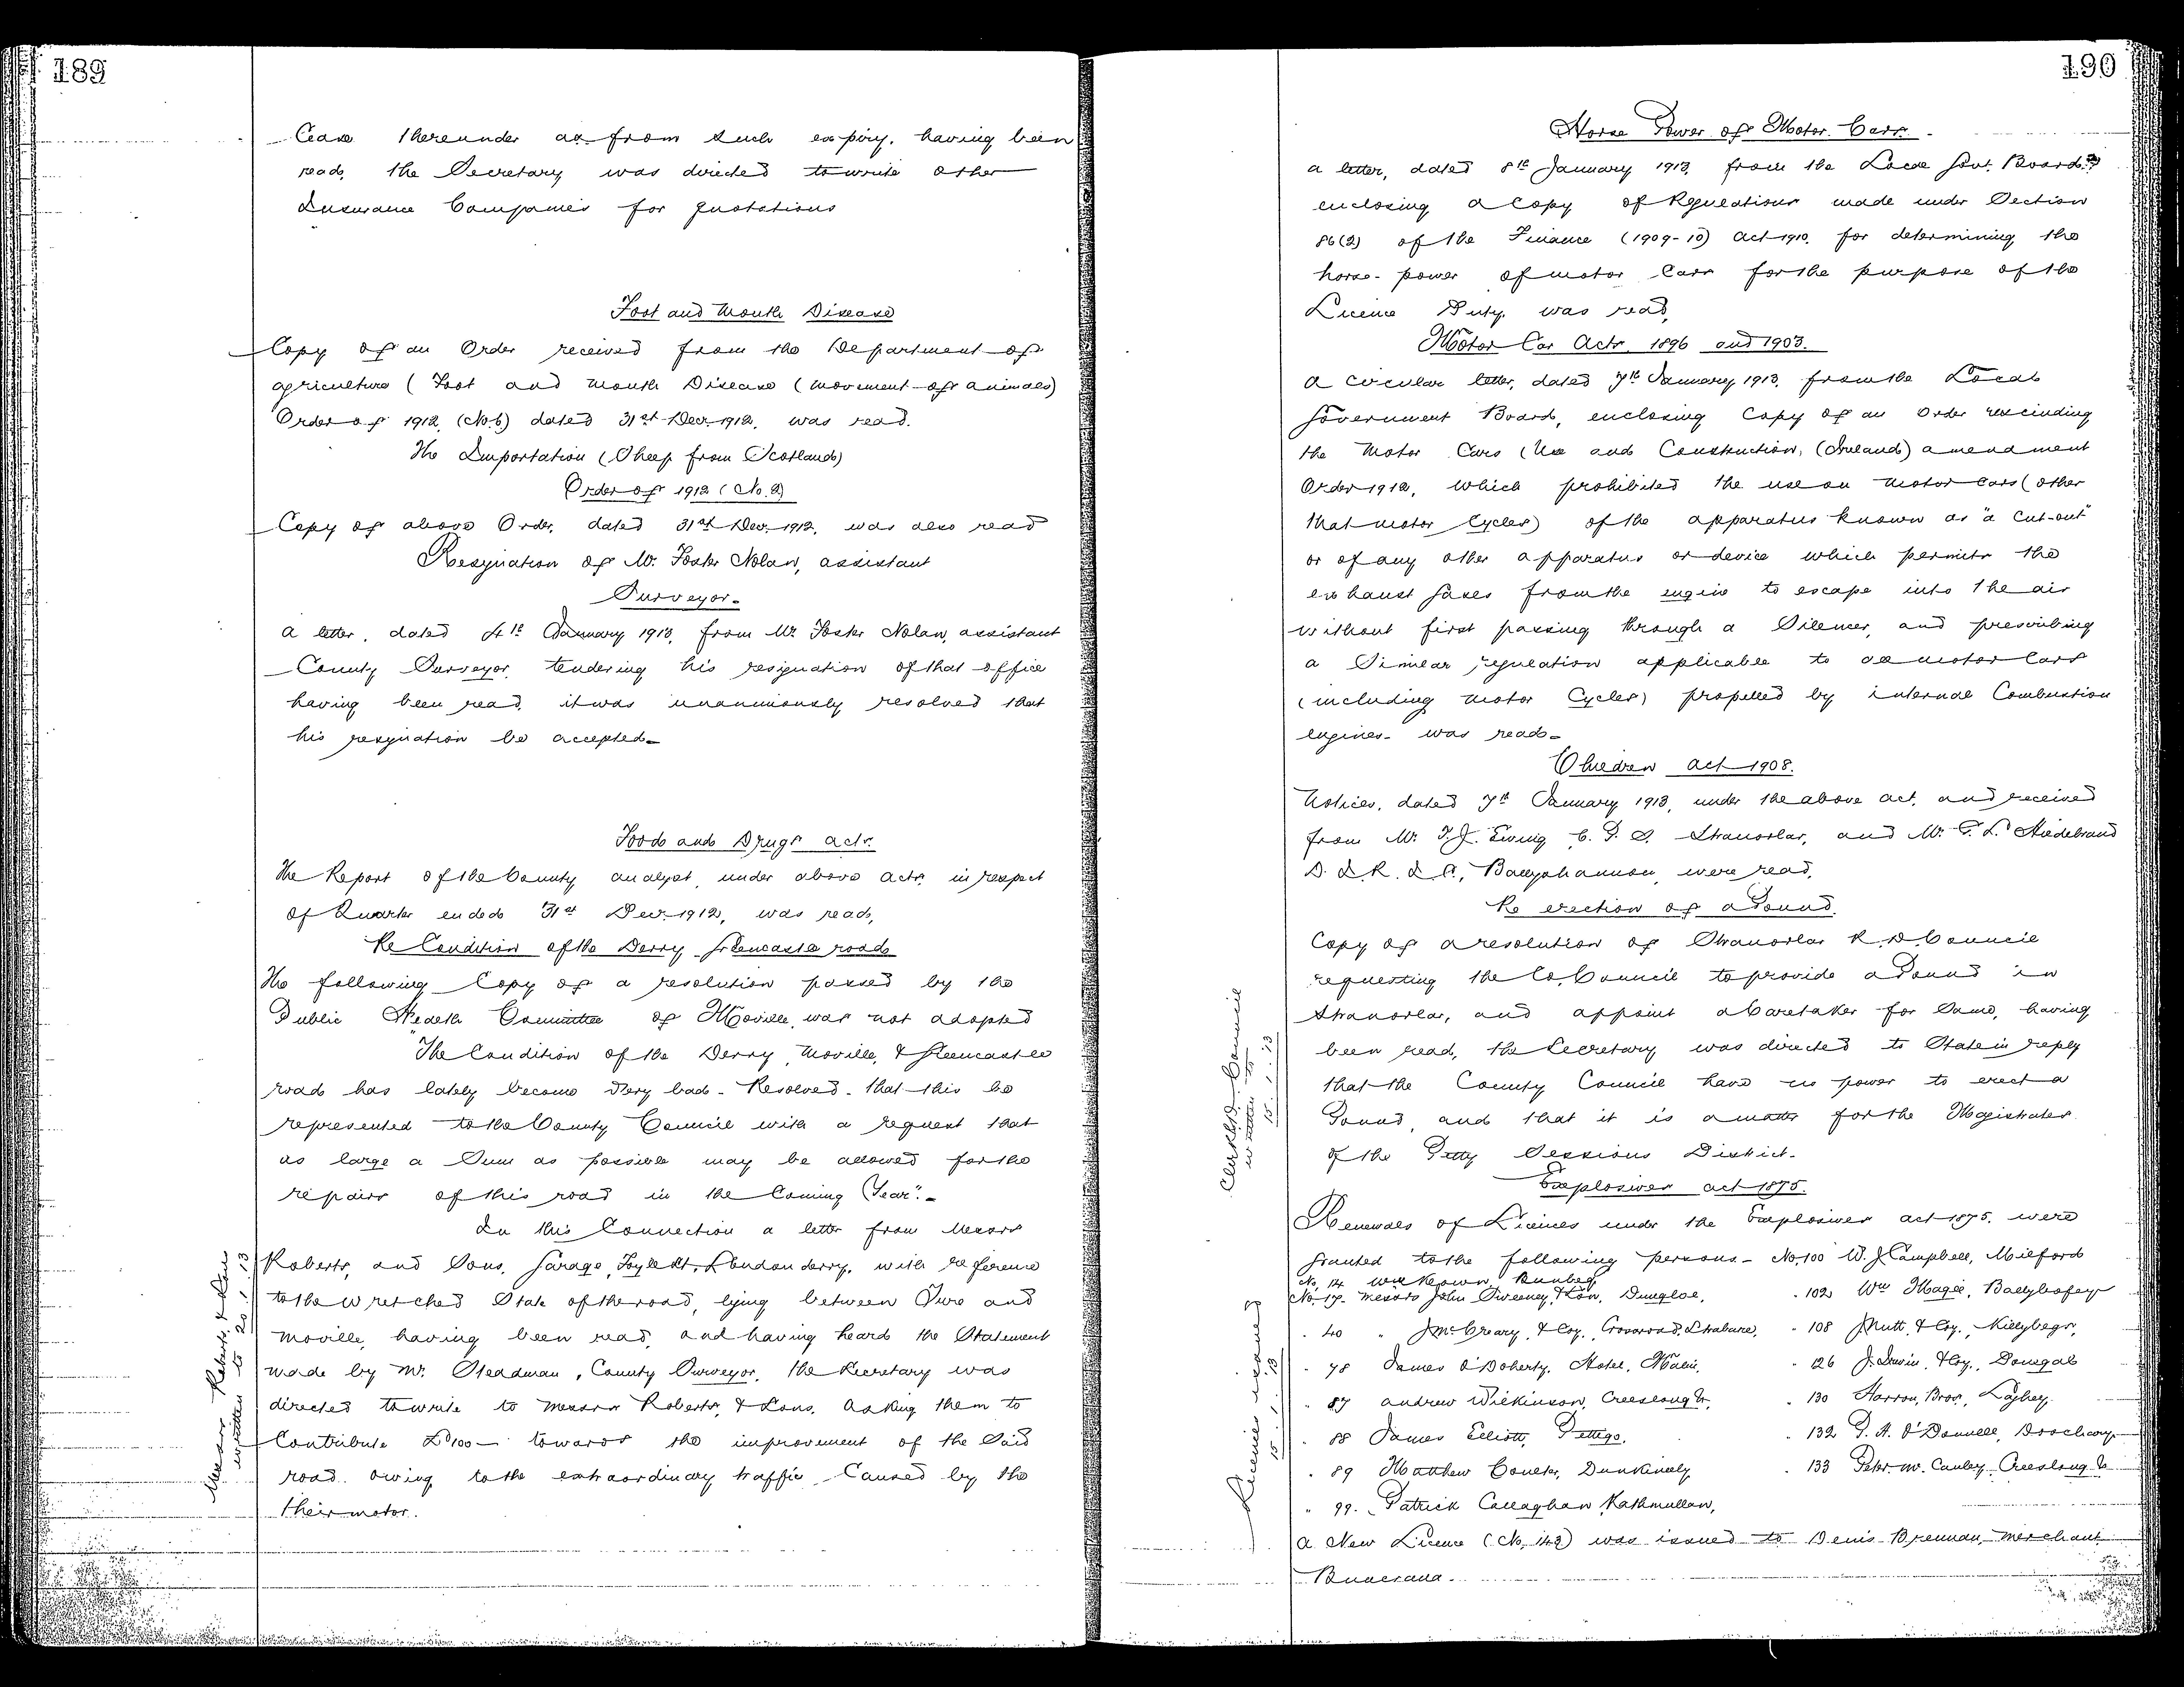 189
Cease thereunder as from such expiry, having been
read, the Secretary was directed to write other
Insurance Companies for quotations
Foot and Mouth Disease
Copy of an Order received from the Department of
Agriculture (Foot and Mouth Disease (movement of animals)
Order of 1912 (No. 6) dated 31st Decr. 1912, was read.
The Importation (Sheep from Scotland)
Order of 1912 (No. 2)
Copy of above Order, dated 31st Decr. 1912, was also read
Resignation of Mr. Foster Nolan, assistant
Surveyor.
A letter, dated 4th January 1913, from Mr Foster Nolan, assistant
County Surveyor, tendering his resignation of that office
having been read, it was unanimously resolved that
his resignation be accepted.
Food and Drugs Acts.
The Report of the County analyst, under above acts, in respect
of Quarter ended 31st Decr. 1912, was read,
Re Condition of the Derry Greencastle road
The following Copy of a resolution passed by the
Public Health Committee of Moville, was not adopted
"The Condition of the Derry, Moville, & Greencastle
road has lately become very bad - Resolved - that this be
represented to the County Council with a request that
as large a Sum as possible may be allowed for the
repairs of this road in the Coming Year".
In this Connection a letter from Messrs
Roberts, and Sons, Garage, Foyle St, Londonderry, with reference
to the wretched State of the road, lying between Quo and
Moville, having been read, and having heard the Statement
made by Mr. Steadman, County Surveyor, the Secretary was
directed to write to Messrs Roberts, & Sons, asking them to
Contribute £100 - towards the improvement of the Said
road, owing to the extraordinary traffic Caused by the
their motor.
Messrs Roberts, & Sons
written to 20.1.13
190
Horse Power of Motor Cars.
A letter, dated 8th January 1913, from the Local Govt. Board
enclosing a Copy of Regulations made under Section
86(2) of the Finance (1909-10) Act 1910, for determining the
horse-power of motor Cars for the purpose of the
Licence Duty, was read,
Motor Car Acts, 1896 and 1903.
A circular letter, dated 7th January, 1913, from the Local
Government Board, enclosing Copy of an Order rescinding
the Motor Cars (Use and Construction, (Ireland) amendment
Order 1912, which prohibited the use on motor Cars (other
that motor Cycles) of the apparatus known as "a Cut-out"
or of any other apparatus or device which permits the
exhaust gases from the engine to escape into the air
without first passing through a Silencer, and prescribing
a Similar regulation applicable to all motor Cars
(including motor Cycles) propelled by internal Combustion
engines - was read -
Children Act 1908.
Notices, dated 7th January 1913, under the above act, and received
from Mr. T.J. Ewing C. P. S. Stranorlar, and Mr. G. L. Hildebrand
D. I. R. I. C., Ballyshannon, were read,
Re erection of a Pound.
Copy of a resolution of Stranorlar R. D. Council
requesting the Co. Council to provide a Pound in
Stranorlar, and appoint a Caretaker for Same, having
been read, the Secretary was directed to State in reply
that the County Council have no power to erect a
Pound, and that it is a matter for the Magistrates
of the Petty Sessions District.
Clerk R.D. Council
written to 15.1.13
Explosives Act 1875.
Renewals of Licences under the Explosives Act 1875, were
granted to the following persons - No. 100 W. J. Campbell, Milford
No. 14 Wm Keown, Bunbeg
No. 17 - Messrs John Sweeney, & Son, Dungloe, " 102 Wm Magee, Ballybofey
" 40 " J McCreary, & Coy., Crossroads, Strabane, " 108 J Mutt, & Coy., Killybegs,
" 78 James O'Doherty, Hotel, Malin, " 126 J. Irwin, & Coy., Donegal
" 87 Andrew Wilkinson, Creeslough, " 130 Harron, Bros., Laghey
" 88 James Elliott, Pettigo, " 132 P. A. O'Donnell,
" 89 Matthew Coulter, Dunkineely " 133 Peter McCauley Creeslough
" 99 - Patrick Callaghan Rathmullan,
Licences issued
15.1.13
A New Licence (No. 142) was issued to Denis Brennan, merchant
Buncrana.